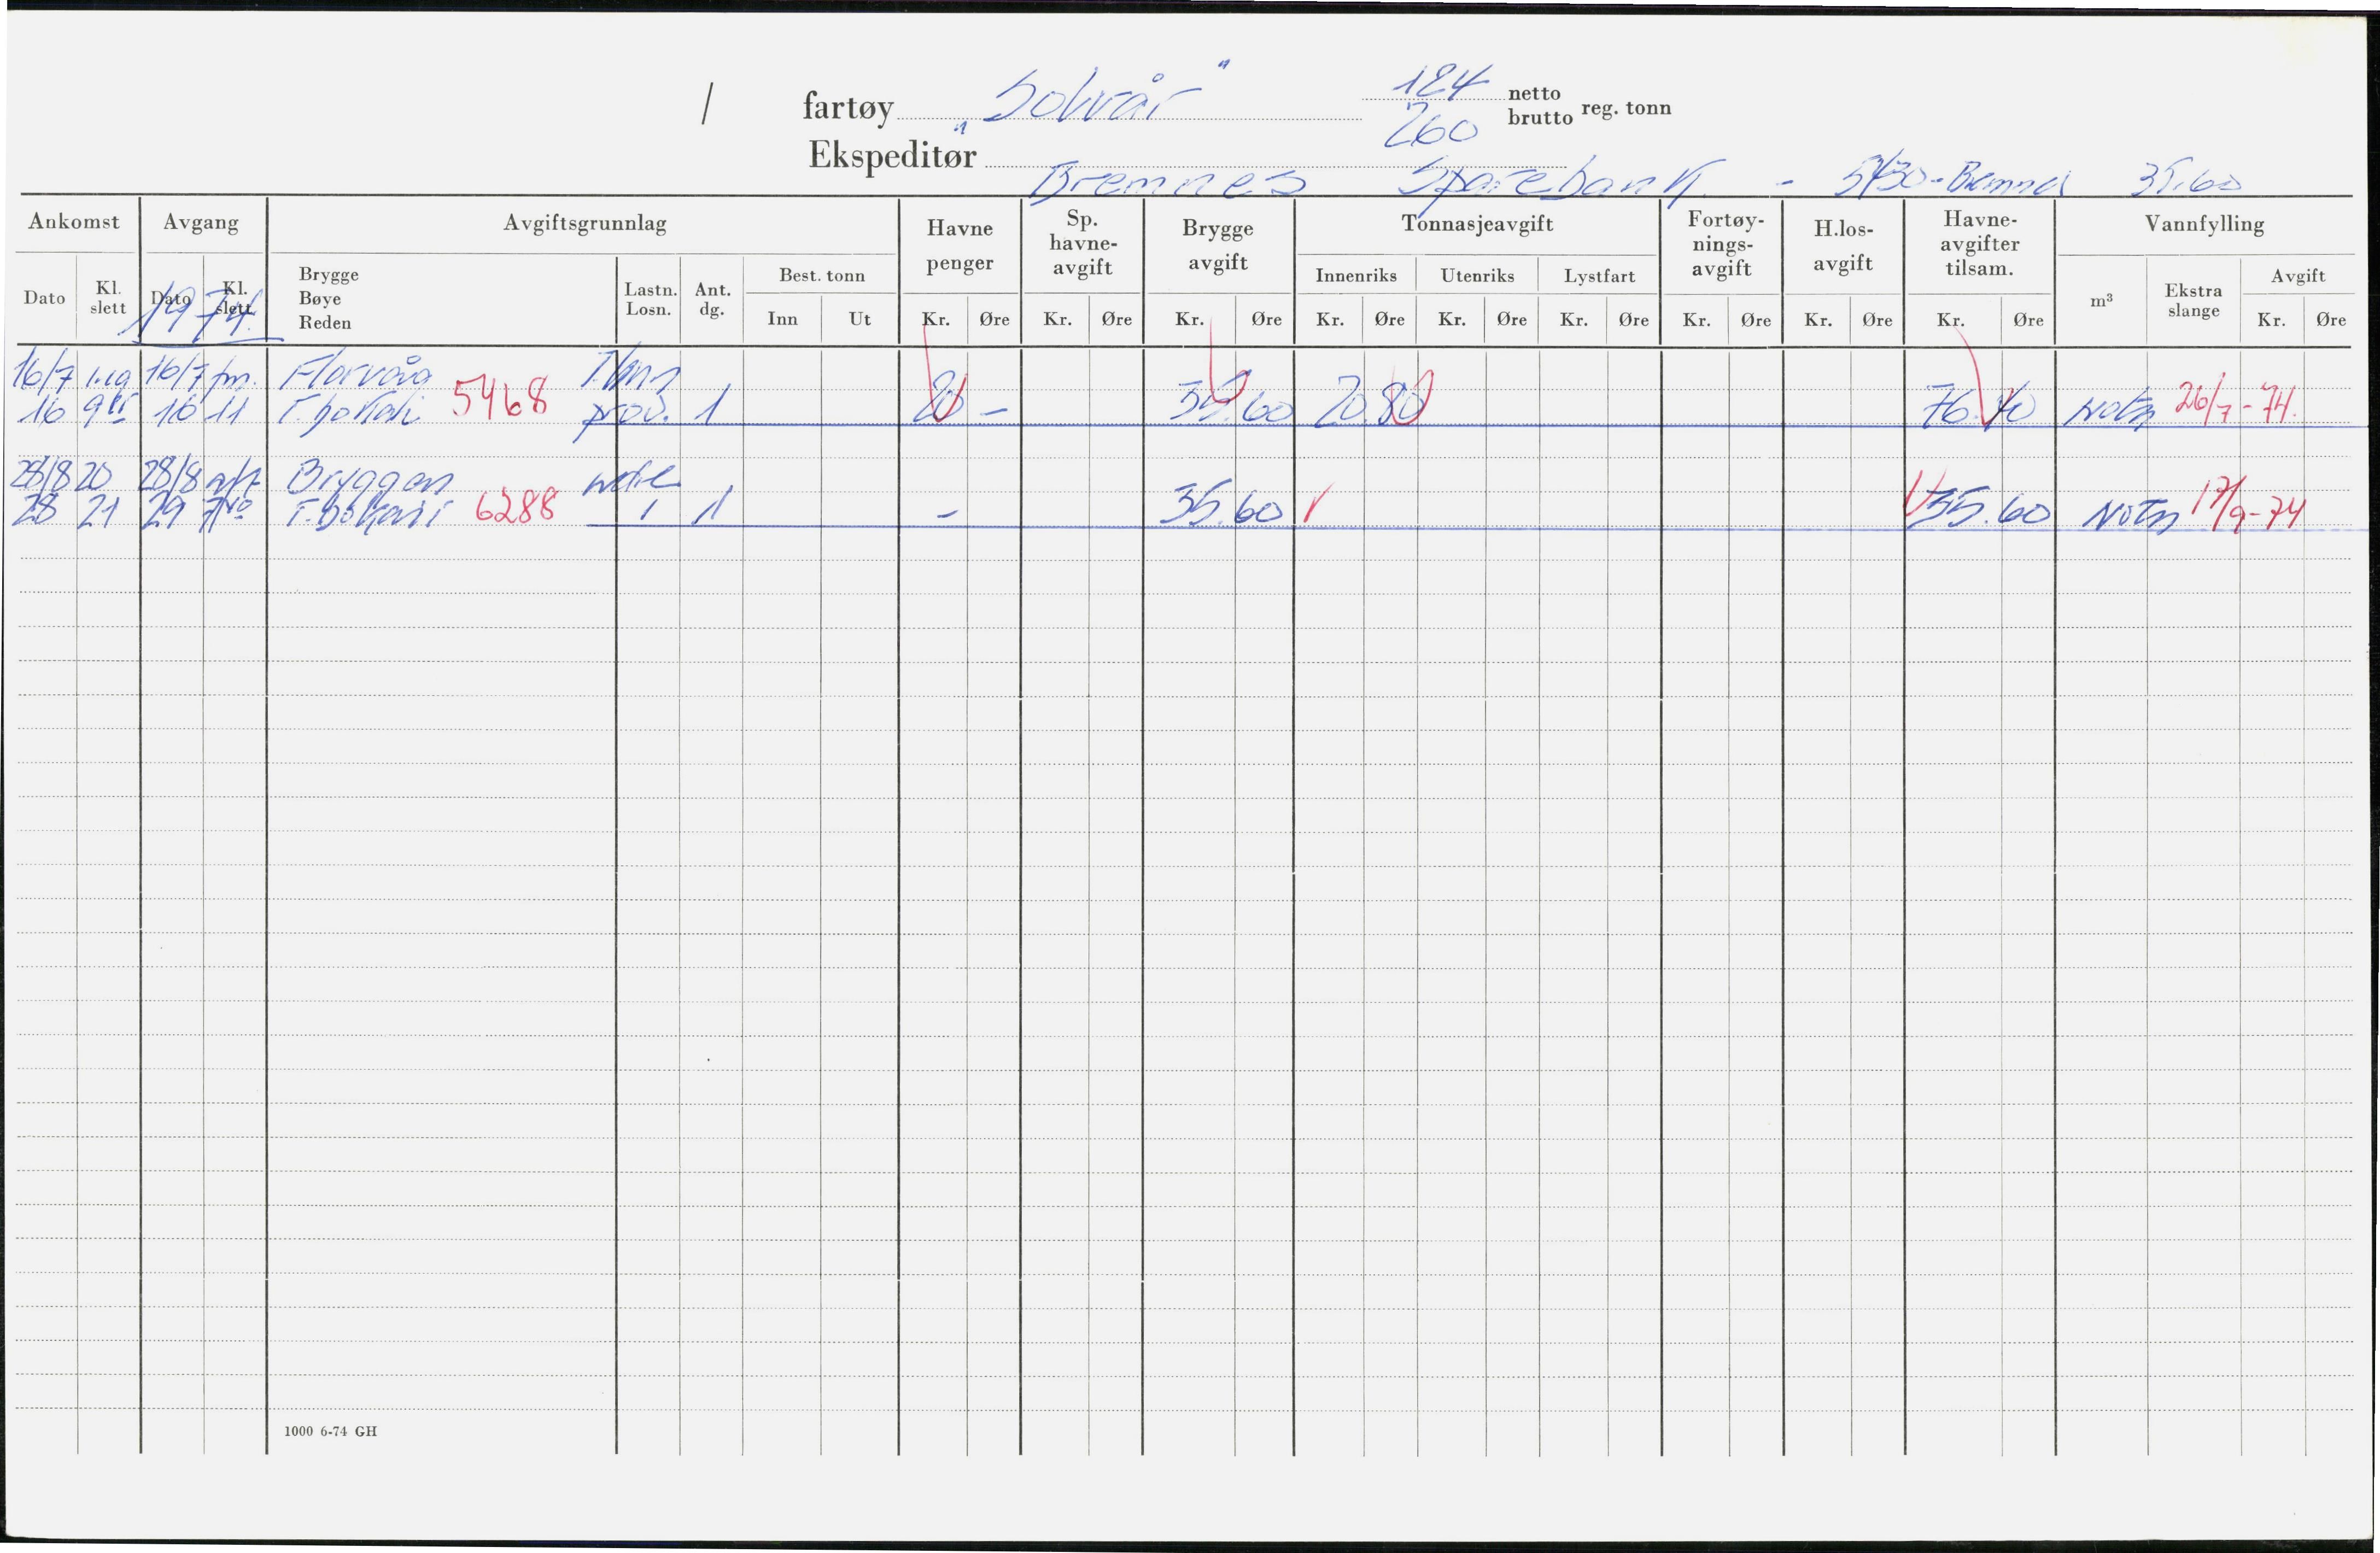 / fartøy "Solvår" 124 netto
260 brutto reg. tonn
Ekspeditør Bremnes Sparebank - 5430 - Bremnes 35.60
Ankomst Avgang Avgiftsgrunnlag Havne penger Sp. havne- avgift Brygge avgift Tonnasjeavgift Fortøy- nings- avgift H.los- avgift Havne- avgifter tilsam. Vannfylling
Dato Kl. slett Dato Kl. slett Brygge Bøye Reden Lastn. Losn. Ant. dg. Best. tonn Innenriks Utenriks Lystfart m³ Ekstra slange Avgift
Inn Ut Kr. Øre Kr. Øre Kr. Øre Kr. Øre Kr. Øre Kr. Øre Kr. Øre Kr. Øre Kr. Øre Kr. Øre
1974.
16/7 16/7 fm. Florvåg
16 16 11 5468 prov. 1 20 - 35.60 20.80 76.40 Nota 26/7-74.
28/8 20 28/8 aft Bryggen
28 21 29 6288 1 - 35.60 35.60 Nota 17/9-74
1000 6-74 GH